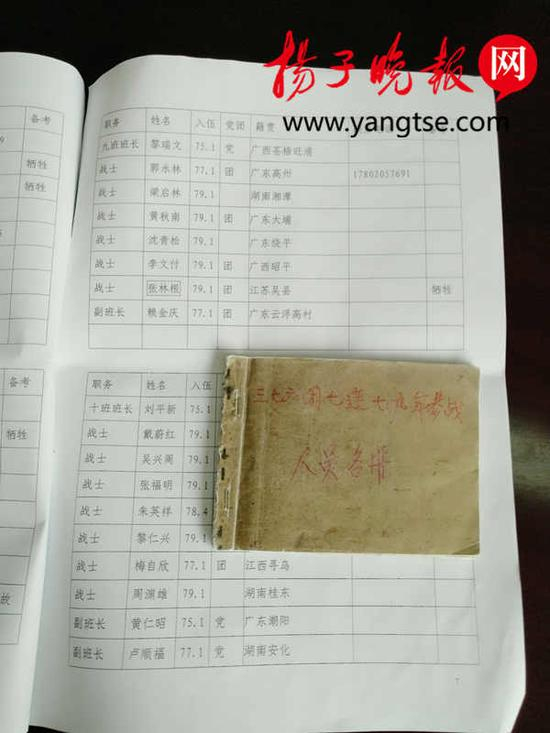 扬子晚报网
www.yangtse.com
备考
牺牲
牺牲
备考
牺牲
故
职务 姓名 入伍 党团 籍贯
九班班长 黎瑞文 75.1 党
战士 郭永林 77.1 团 广东高州 17802057691
战士 梁启林 79.1 湖南湘潭
战士 黄秋南 79.1 团 广东大埔
战士 沈青松 79.1 广东饶平
战士 李文付 79.1 团 广西昭平
战士 张林根 79.1 团 江苏吴县 牺牲
副班长 赖金庆 77.1 团 广东云浮高村
职务 姓名 入伍
十班班长 刘平新 75.1
战士 戴蔚红 79.1
战士 吴兴周 79.1
战士 张福明 79.1
战士 朱英祥 78.4
战士 黎仁兴 79.1
战士 梅自欣 77.1 团 江西寻乌
战士 周渊雄 79.1 湖南桂东
副班长 黄仁昭 75.1 党 广东潮阳
副班长 卢顺福 77.1 党 湖南安化
三七六团七连七九年参战
人员名册
7